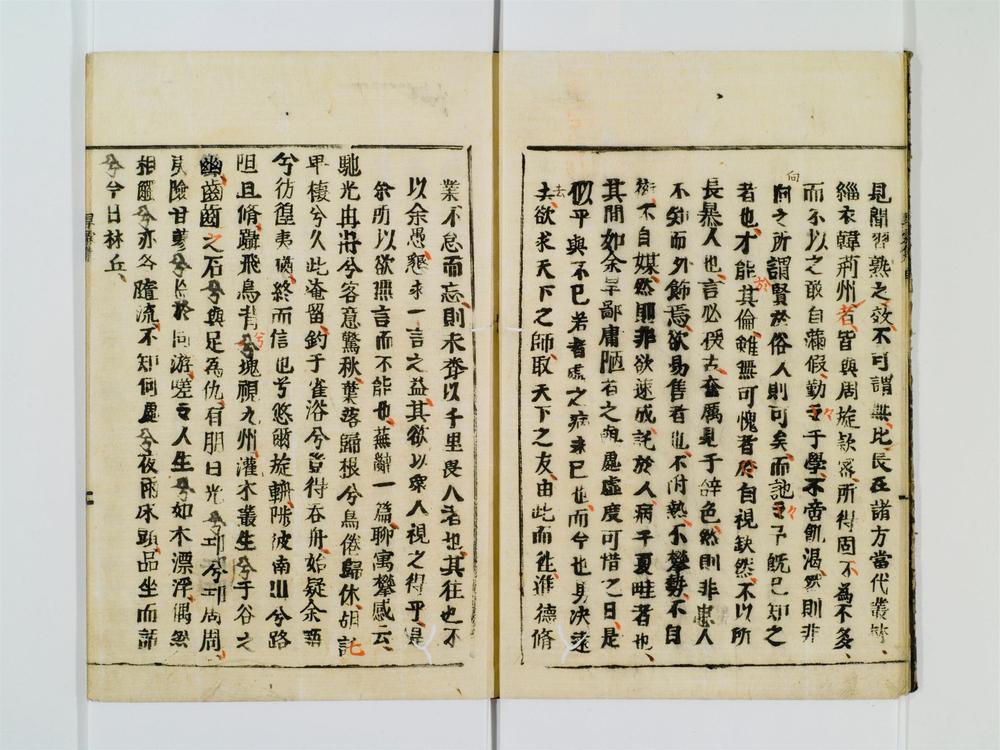 見聞習熟之效、不可謂無比、長在諸方當代叢
緇衣韓荊州者、皆與周旋欵密、所得固不為不多、
而不以之敢自滿假、勤々于學、不啻飢渴、然則非
向之所謂賢於俗人則可矣、而訑々予既已知之
者也、才能其倫、雖無可愧者、於自視缺然、不以所
長暴人也、言必復古、奮厲見于辞色、然則非患人
不知而外飾焉、欲易售者也、不附熱、不攀勢、不自
衒、不自媒、然則非欲速成、託於人、病于夏畦者也、
其間如余卑鄙庸陋、右之視處虛度可惜之日、是
似乎與不已若者處之病未已也、而今也易決遠
去、欲求天下之師、取天下之友、由此而往、進德脩
業不怠而忘、則末齊以千里畏人者也、其往也不
以余愚、懇求一言之益、其欲以衆人視之得乎、是
余所以欲無言而不能也、蕪辭一篇、聊寓攀感云、
馳光冉冉兮客意驚秋、葉落歸根兮鳥倦歸休、胡託
甲棲兮久此淹留、釣于雀浴兮豈得吞舟、始疑余語
兮彷徨夷猶、終而信也兮悠爾旋輈、陟彼南山兮路
阻且脩、躡飛鳥背兮塊視九州、灌木叢生兮于谷之
幽、齒齒之石兮與足為仇、有朋日光兮
夷險甘蓼兮於同游、嗟吾人生兮如木漂浮、偶然
相兮亦各隨流、不知何處兮夜雨床頭、品坐而話
兮今日林丘、